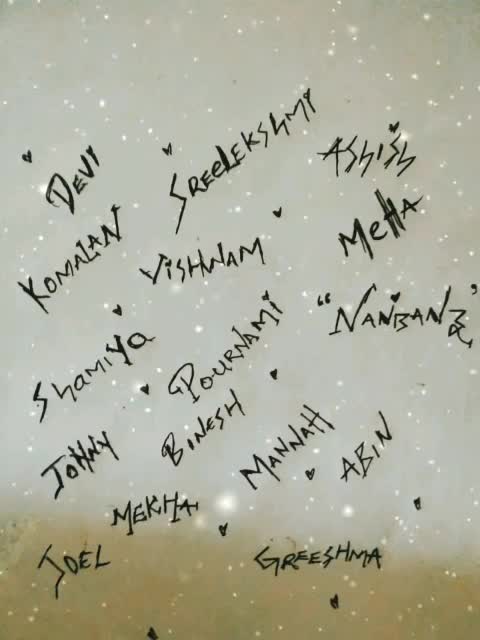 DEVI
SREELEKSHMI
ASHISH
KOMALAN
VISHNAM
MEHA
"NANBANZ"
ShamiYa
POURNAMI
JOHNY
BINESH
MANNAH
ABIN
MEKHA
JOEL
GREESHMA